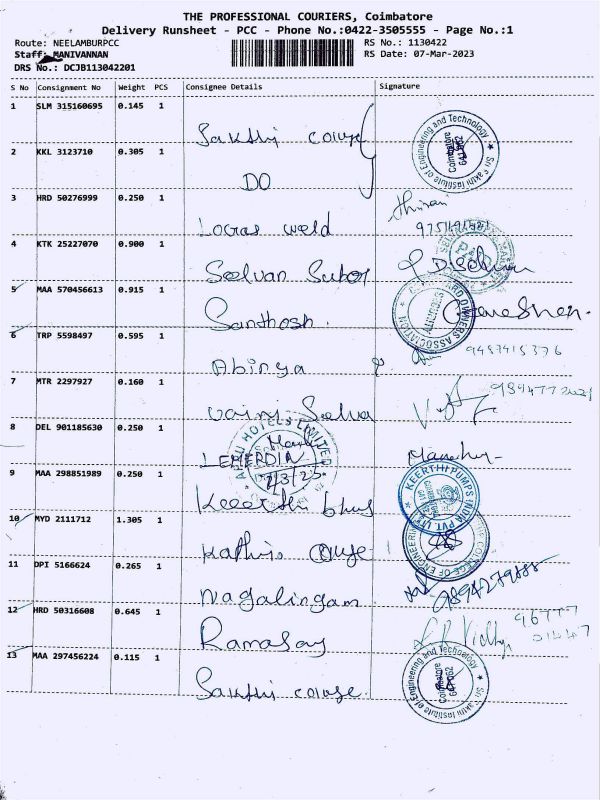 THE PROFESSIONAL COURIERS, Coimbatore
Delivery Runsheet - PCC - Phone No.:0422-3505555 - Page No.:1
Route: NEELAMBURPCC RS No.: 1130422
Staff: MANIVANNAN RS Date: 07-Mar-2023
DRS No.: DCJB113042201
S No Consignment No Weight PCS Consignee Details Signature
1 SLM 315160695 0.145 1
Sakthi couye
Sri Sakthi Institute of Engineering and Technology
Coimbatore
641 062
2 KKL 3123710 0.305 1
DO
3 HRD 50276999 0.250 1
weld
4 KTK 25227070 0.900 1
Selvan
5 MAA 570456613 0.915 1
Santhosh.
OWNERS ASSOCIATION
6 TRP 5598497 0.595 1
Abinya
9487915376
7 MTR 2297927 0.160 1
Selva
8 DEL 901185630 0.250 1
HOTELS LIMITED
LEMERDIN
7/3/23
9 MAA 298851989 0.250 1
Keerthi
KEERTHI PUMPS INDIA PVT. LTD
10 MYD 2111712 1.305 1
Kathir couye
COLLEGE OF ENGINEERING
11 DPI 5166624 0.265 1
Nagalingam
12 HRD 50316608 0.645 1
Ramasay
13 MAA 297456224 0.115 1
Sakthi couye.
Sri Sakthi Institute of Engineering and Technology
Coimbatore
641 062